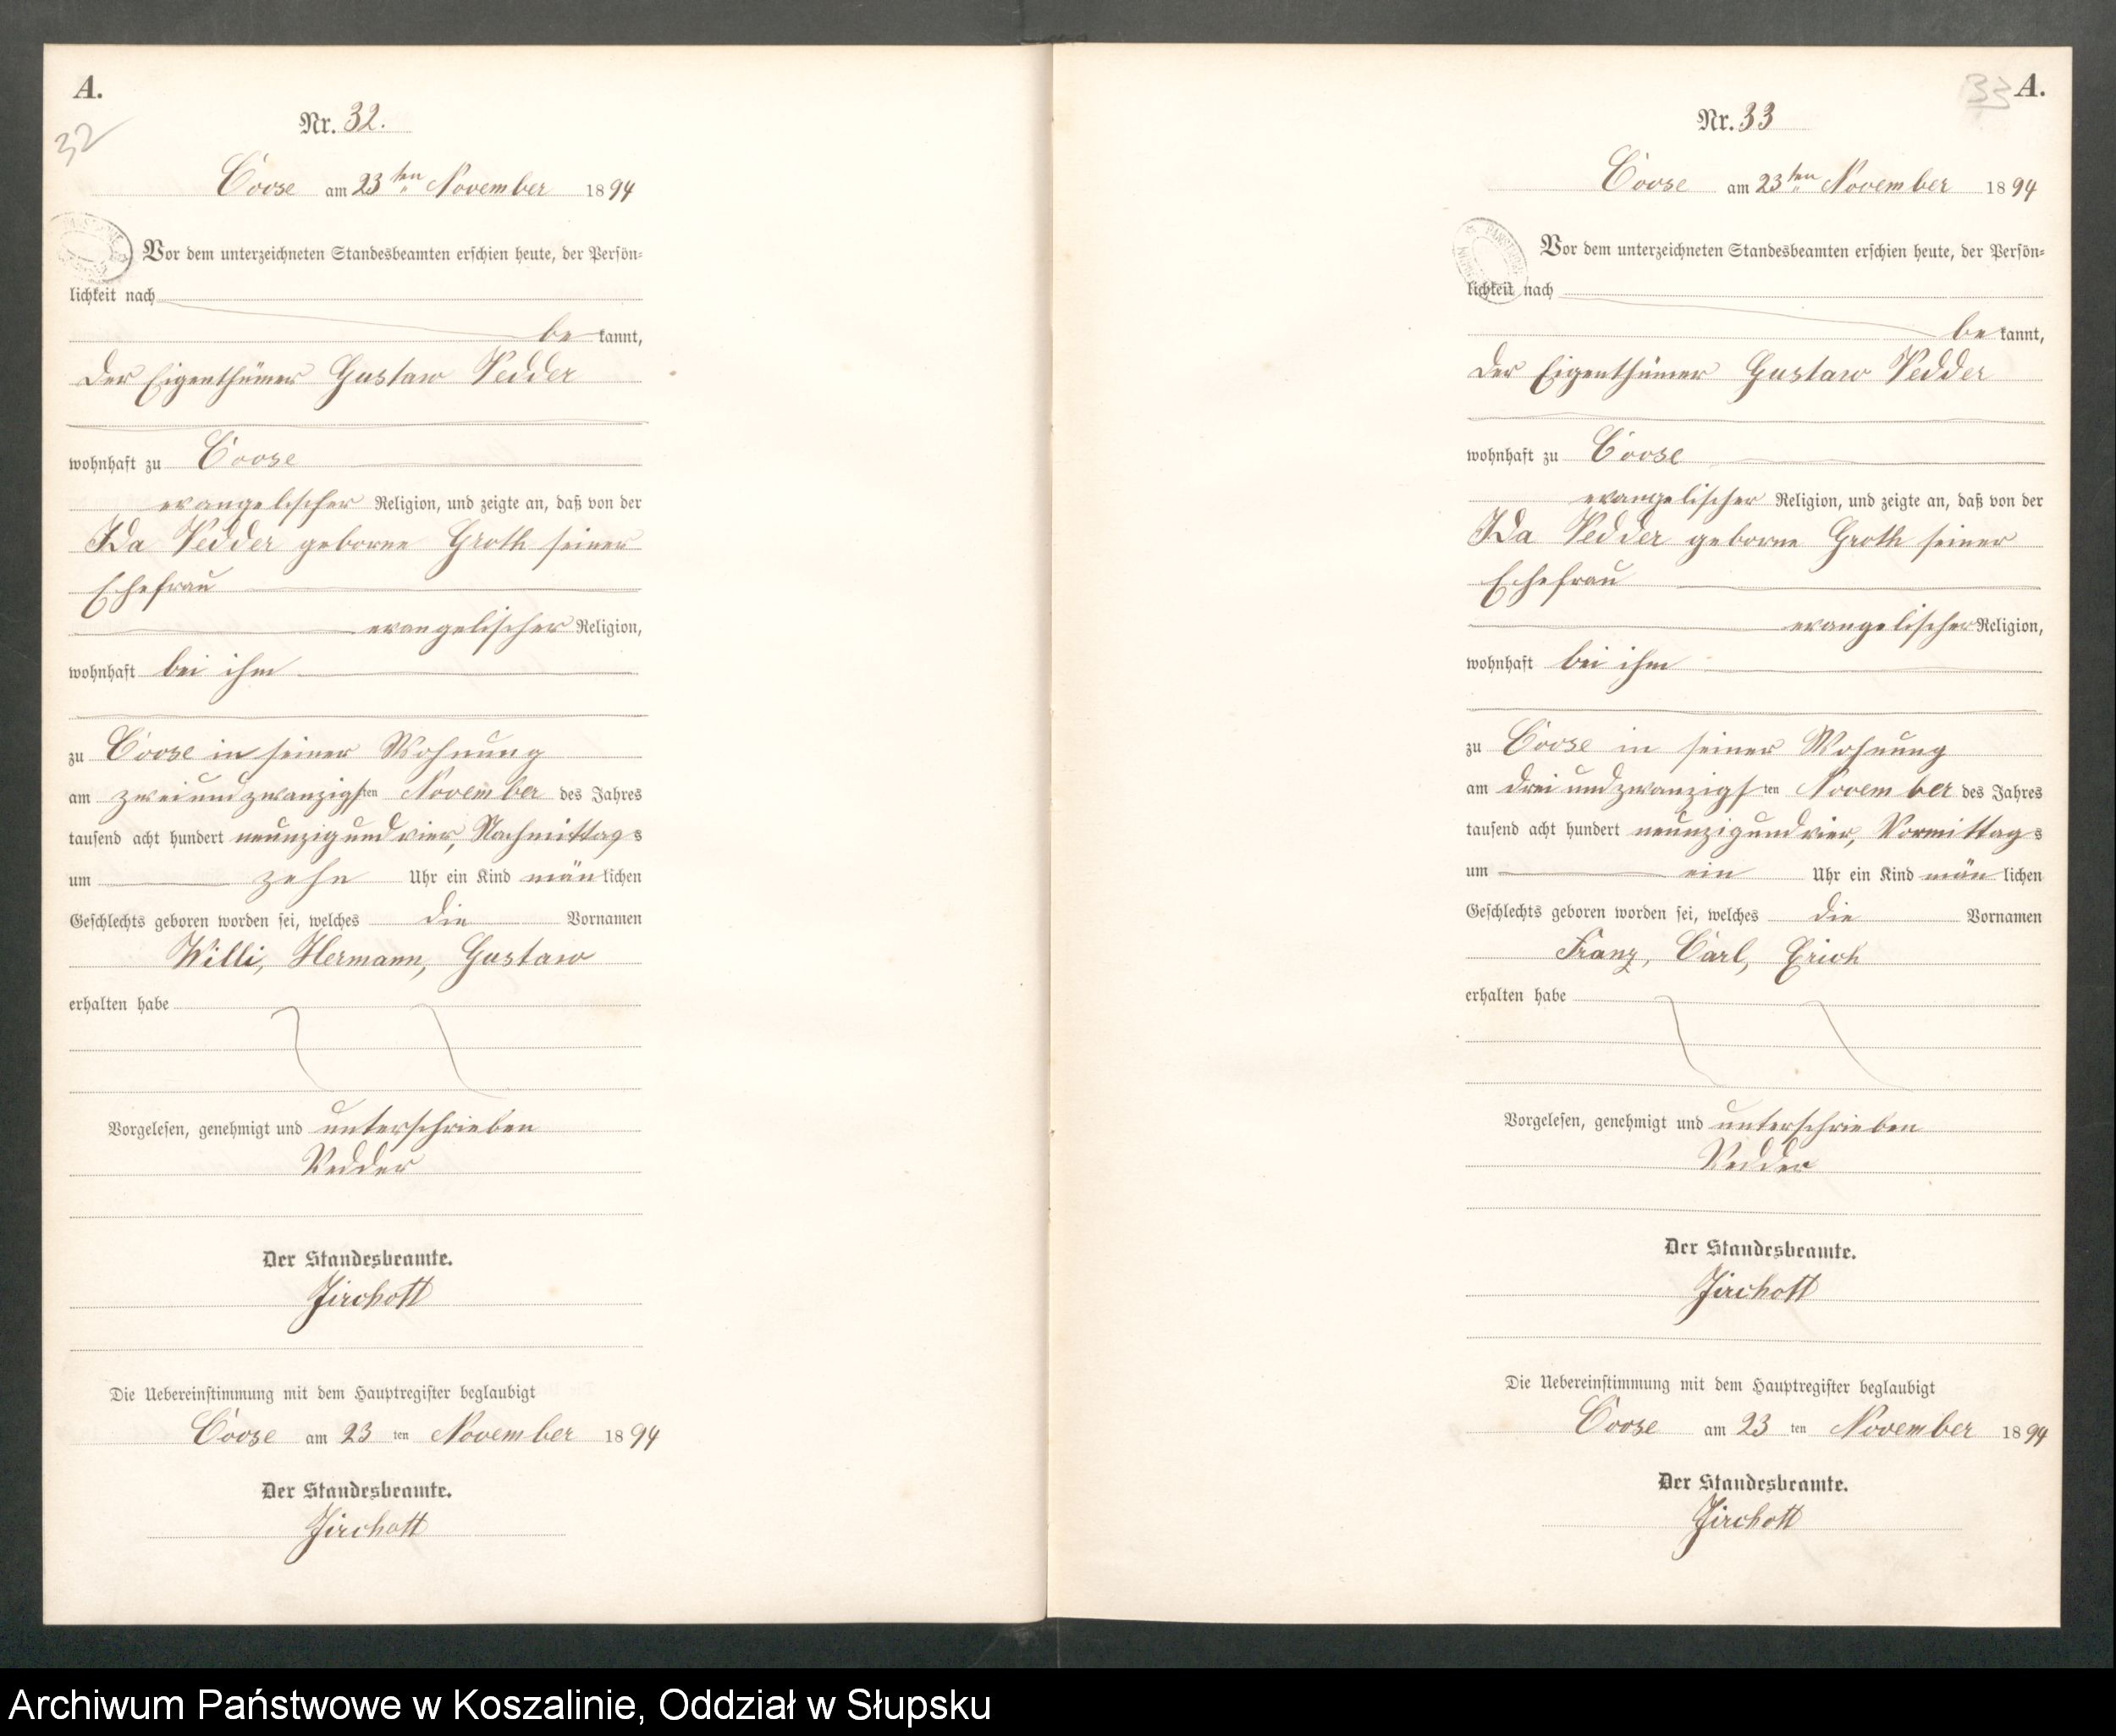 A.
32
Nr. 32.
Coose am 23ten November 1894
Vor dem unterzeichneten Standesbeamten erschien heute, der Persön-
lichkeit nach
be kannt,
der Eigenthümer Gustaw Vedder
wohnhaft zu Coose
evangelischer Religion, und zeigte an, daß von der
Ida Vedder geborne Groth seiner
Ehefrau
evangelischer Religion,
wohnhaft bei ihm
zu Coose in seiner Wohnung
am zweiundzwanzigsten November des Jahres
tausend acht hundert neunzigundvier, Nachmittags
um zehn Uhr ein Kind män lichen
Geschlechts geboren worden sei, welches die Vornamen
Willi, Hermann, Gustaw
erhalten habe
Vorgelesen, genehmigt und unterschrieben
Vedder
Der Standesbeamte.
Zirchott
Die Uebereinstimmung mit dem Hauptregister beglaubigt
Coose am 23 ten November 1894
Der Standesbeamte.
Zirchott
33 A.
Nr. 33
Coose am 23ten November 1894
Vor dem unterzeichneten Standesbeamten erschien heute, der Persön-
lichkeit nach
be kannt,
der Eigenthümer Gustaw Vedder
wohnhaft zu Coose
evangelischer Religion, und zeigte an, daß von der
Ida Vedder geborne Groth seiner
Ehefrau
evangelischer Religion,
wohnhaft bei ihm
zu Coose in seiner Wohnung
am dreiundzwanzigsten November des Jahres
tausend acht hundert neunzigundvier, Vormittags
um ein Uhr ein Kind män lichen
Geschlechts geboren worden sei, welches die Vornamen
Franz, Carl, Erich
erhalten habe
Vorgelesen, genehmigt und unterschrieben
Vedder
Der Standesbeamte.
Zirchott
Die Uebereinstimmung mit dem Hauptregister beglaubigt
Coose am 23 ten November 1894
Der Standesbeamte.
Zirchott
Archiwum Państwowe w Koszalinie, Oddział w Słupsku